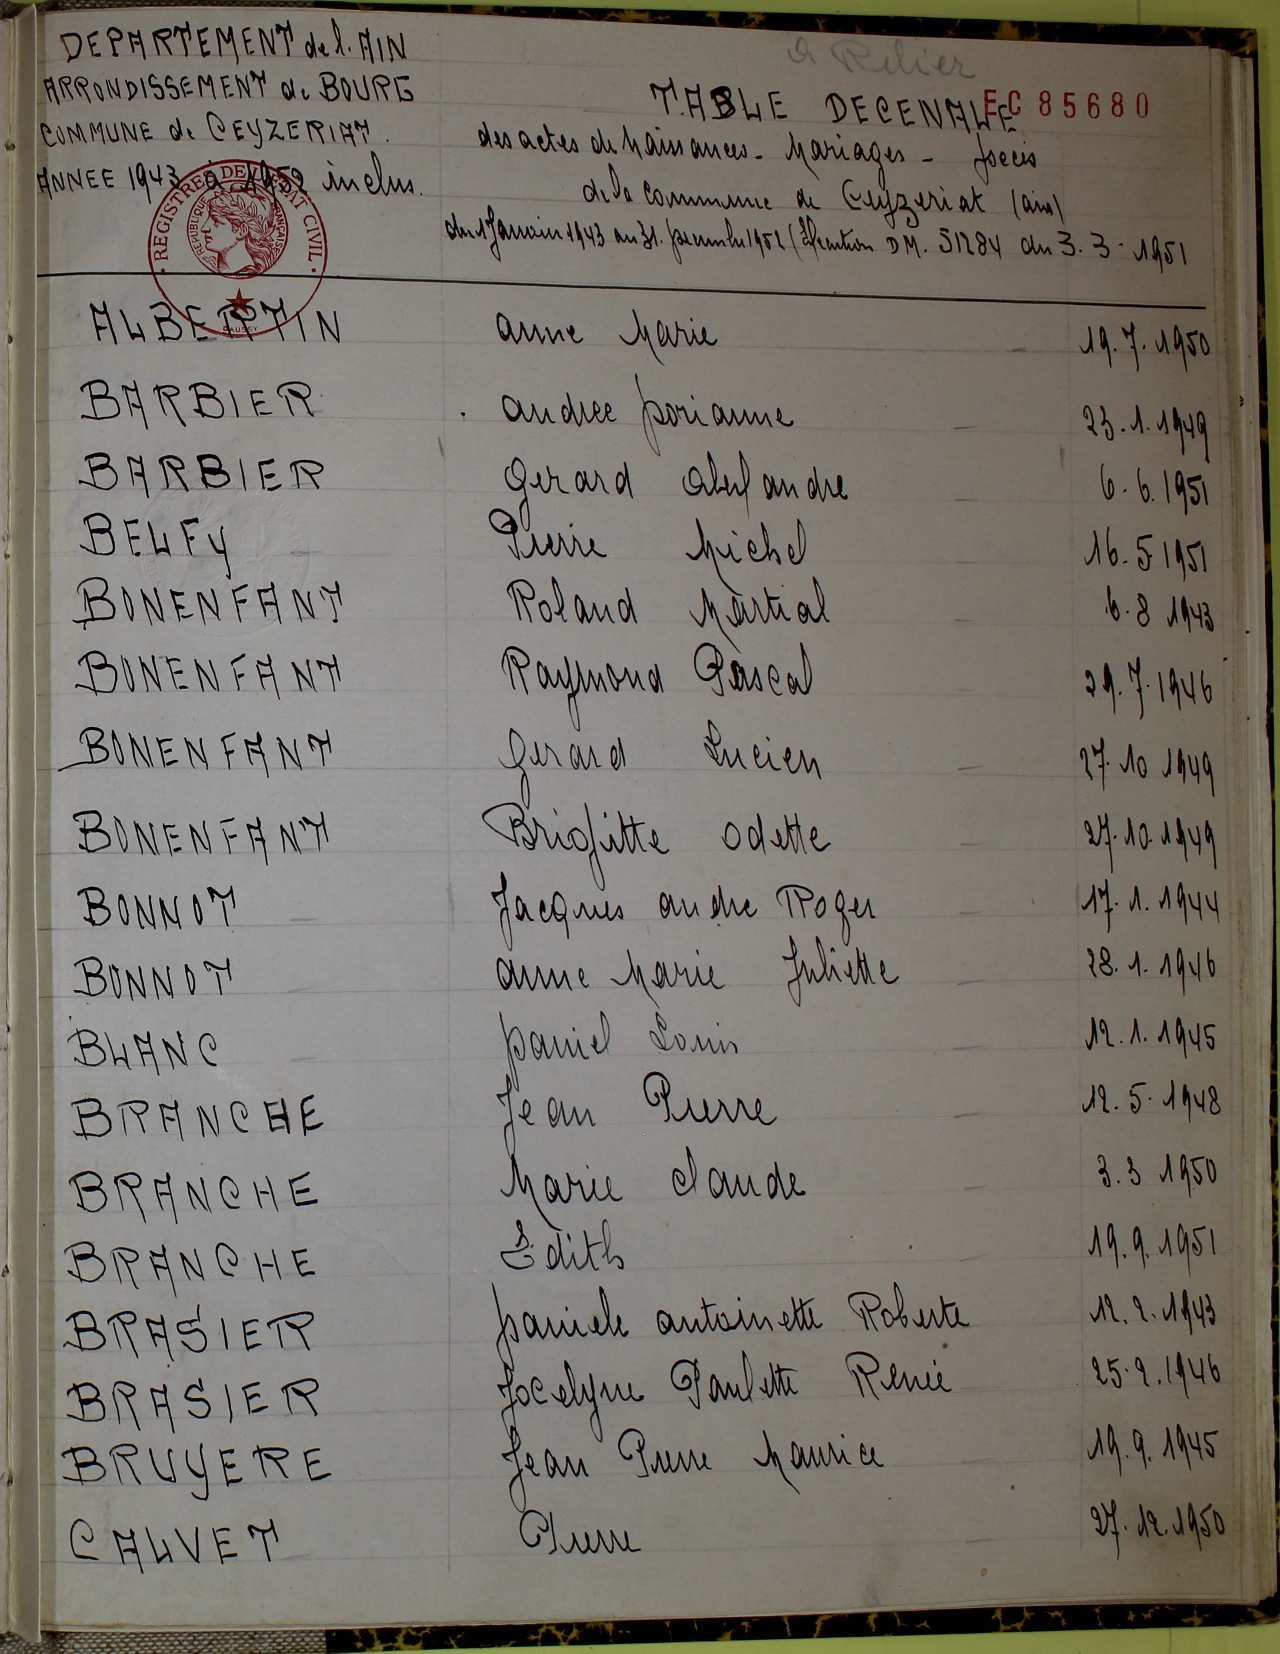 DEPARTEMENT de l'AIN
ARRONDISSEMENT de BOURG
COMMUNE de CEYZERIAT.
ANNEE 1943 à 1952 inclus.
à Relier
EC 85680
TABLE DECENALE
des actes de Naissances - Mariages - Decès
de la commune de Ceyzeriat (Ain)
du 1 Janvier 1943 au 31. Decembre 1952 ( DM. 51284 du 3. 3. 1951
REGISTRES DE L'ETAT CIVIL
REPUBLIQUE FRANÇAISE
ALBERTIN Anne Marie 19.7.1950
BARBIER Andree Dorianne 23.1.1949
BARBIER Gerard Alexandre 6.6.1951
BELFY Pierre Michel 16.5 1951
BONENFANT Roland Martial 6.8 1943
BONENFANT Raymond Pascal 29.7.1946
BONENFANT Gerard Lucien 27.10 1949
BONENFANT Brigitte Odette 27.10.1949
BONNOT Jacques Andre Roger 17.1.1944
BONNOT Anne Marie Juliette 28.1.1946
BLANC Daniel Louis 12.1.1945
BRANCHE Jean Pierre 12.5.1948
BRANCHE Marie Claude 3.3 1950
BRANCHE Edith 19.9.1951
BRASIER Daniele Antoinette Roberte 12.2.1943
BRASIER Jocelyne Paulette Renée 25.2.1946
BRUYERE Jean Pierre Maurice 19.9.1945
CALVET Pierre 27.12.1950